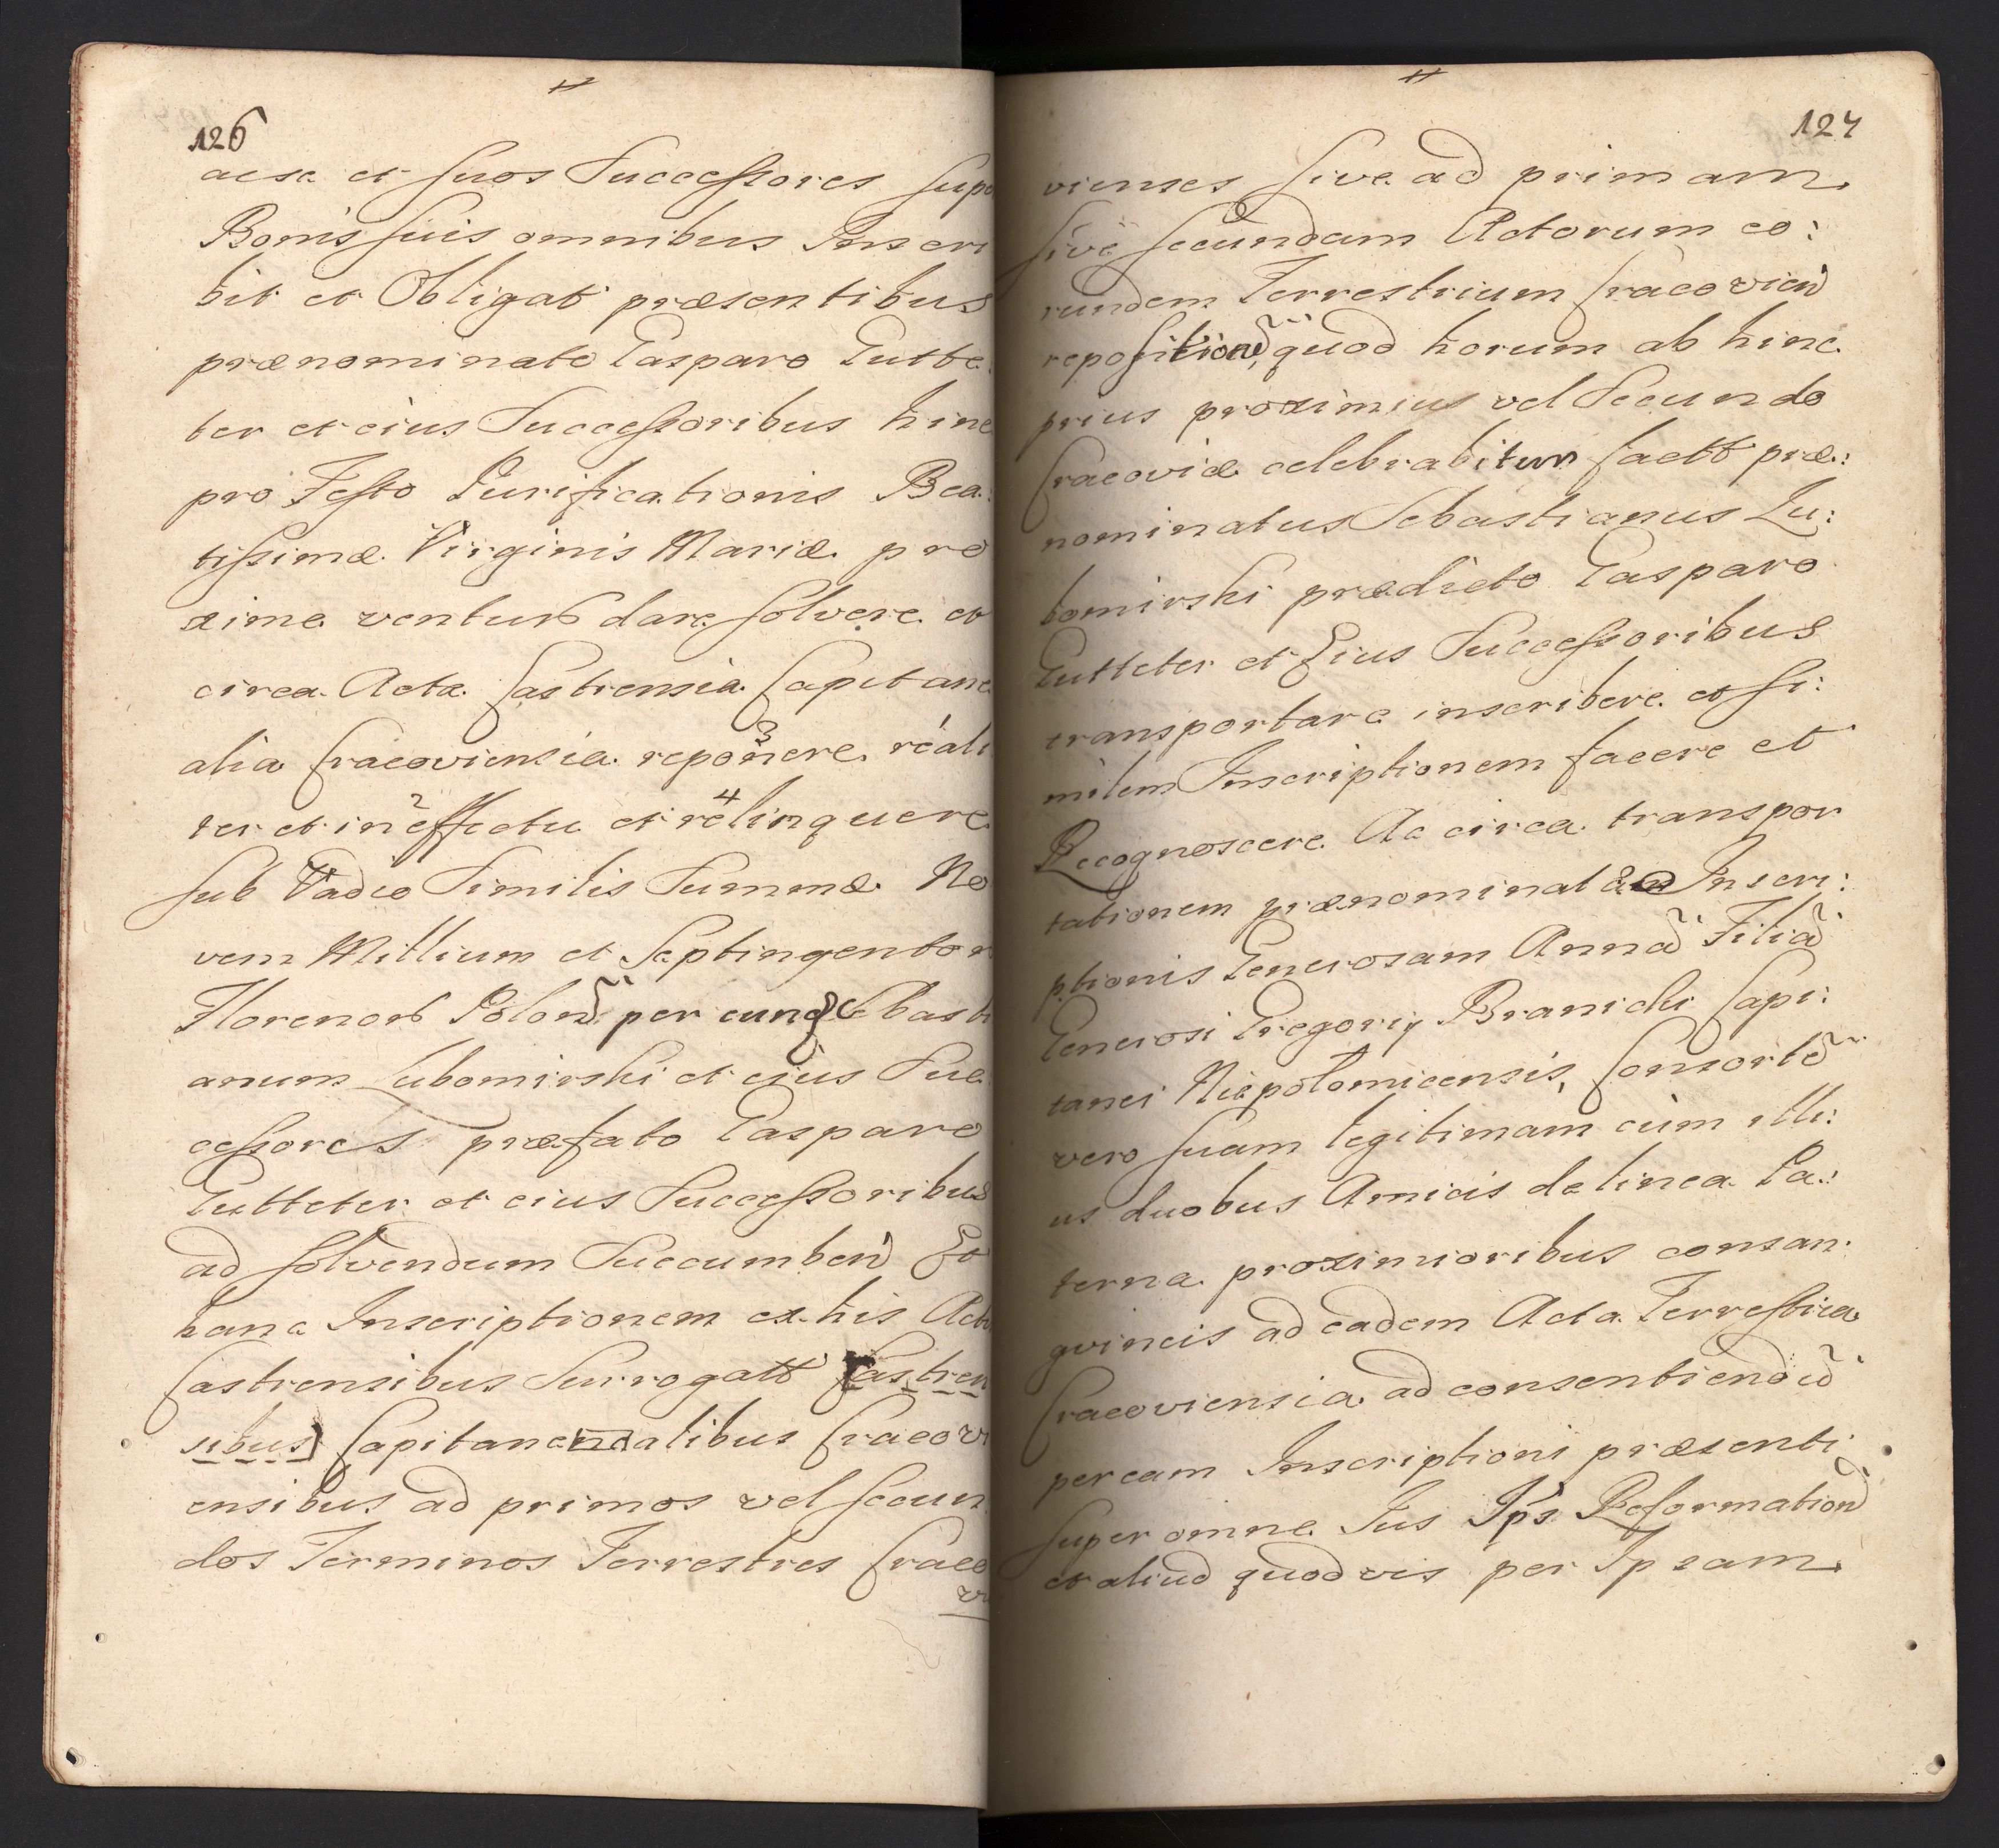 126
ac se et suos Successores supe
Bonis suis omnibus Inscri
bit et Obligat præsentibus
prænominato Gasparo Gutte
ter et eius Successoribus hinc
pro Festo Purificationis Bea:
tissimæ Virginis Mariæ pro
xime ventur dare solvere et
circa Acta Castrensia Capitane
alia Cracoviensia reponere reali
ter et in effectu et relinquere
sub Vadio Similis Summæ No
vem Millium et Septingentor
Florenor Polon per eund Sebasti
anum Lubomirski et eius Suc
cessores præfato Gasparo
Gutteter et eius Successoribus
ad solvendum Succumben Et
hanc Inscriptionem ex his Actis
Castrensibus Surrogatt Castren
sibus Capitaneanealibus Cracovi
ensibus ad primos vel secun
dos Terminos Terrestres Craco
vi
127
vienses sive ad primam
sive secundam Actorum eo:
rundem Terrestrium Cracovien
reposition quod horum ab hinc
prius proximius vel Secundo
Cracoviæ celebrabitur factt præ:
nominatus Sebastianus Lu:
bomirski prædicto Gasparo
Gutteter et Eius Successoribus
transportare inscribere et si:
milem Inscriptionem facere et
Recognoscere Ac circa transpor
tationem prænominatæ Inscri:
ptionis Generosam Annã Filiã
Generosi Gregorij Branicki Capi:
tanei Niepolomicensis, Consortẽ
vero suam legitimam cum illi:
us duobus Amicis de linea Pa:
terna proximioribus consan:
gvineis ad eadem Acta Terrestria
Cracoviensia ad consentiendũ
per eam Inscriptioni præsenti
super omne Ius Ips Reformation
et aliud quodvis per Ipsam